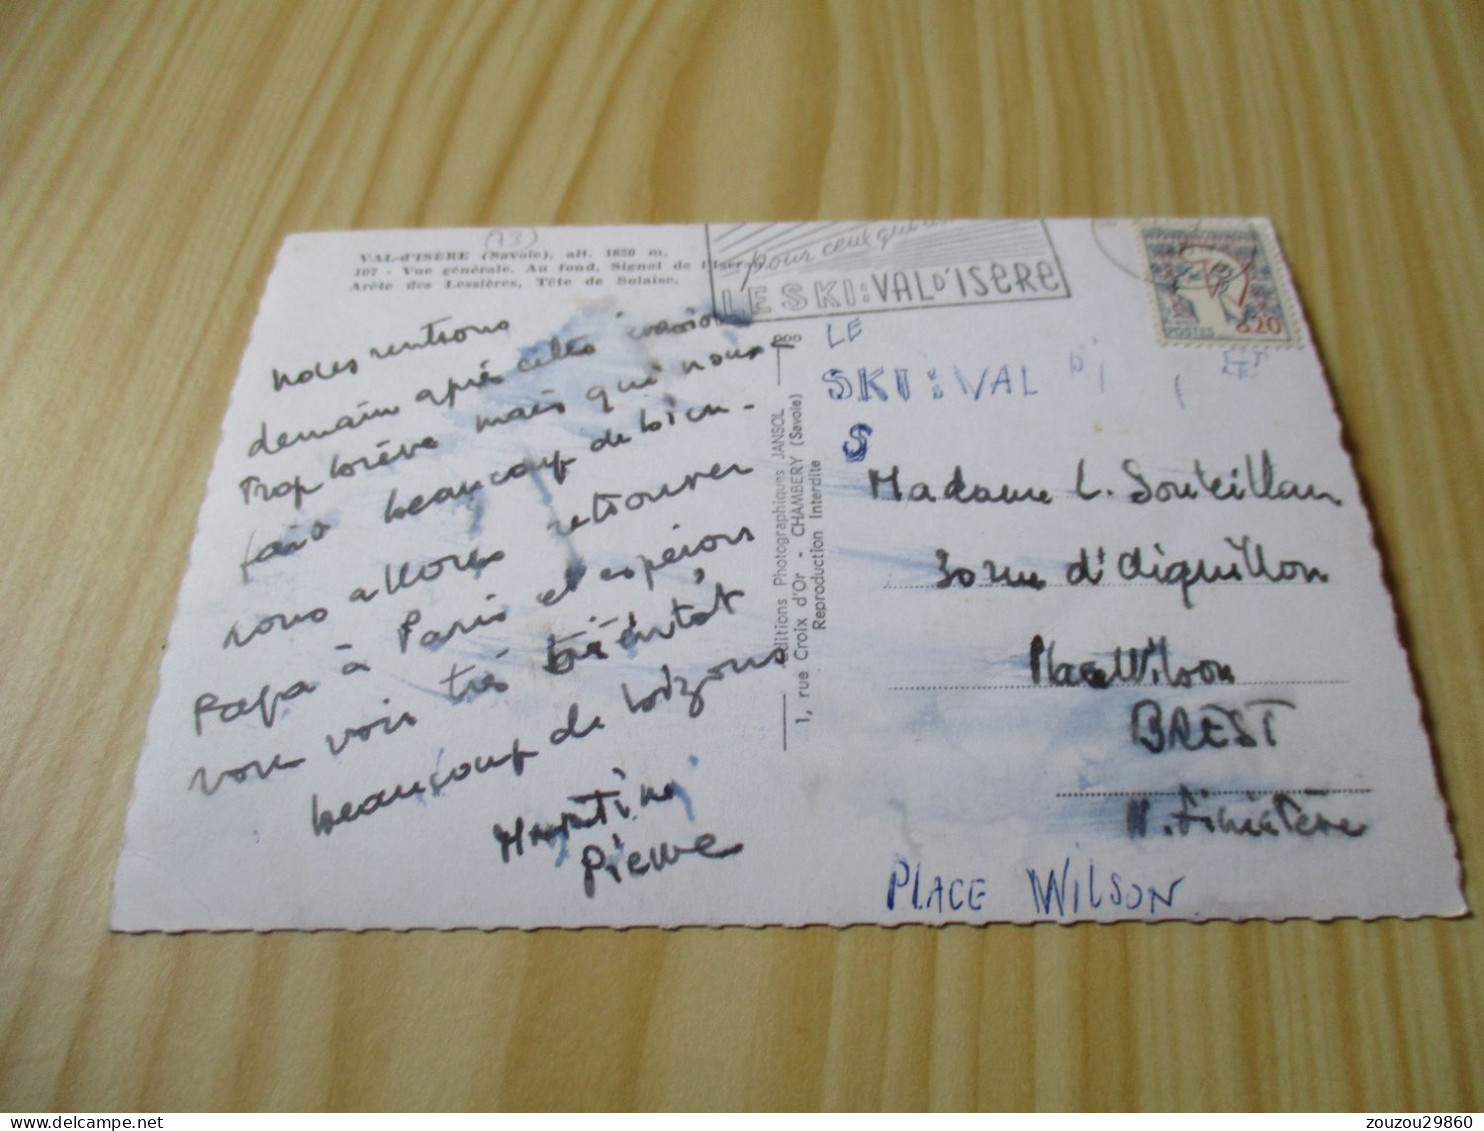 (73)
VAL-d'ISÈRE (Savoie), alt. 1850 m.
107 - Vue générale. Au fond, Signal de l'Iseran,
Arête des Lessières, Tête de Solaise.
pour ceux qui
LE SKI : VAL D'ISÈRE
POSTES 0,20
Nous rentrons
demain après cette évasion
trop brève mais qui nous
fait beaucoup de bien -
nous allons retrouver
Papa à Paris et espérons
vous voir très bientôt
beaucoup de
Martine
Pierre
Editions Photographiques JANSOL
1, rue Croix d'Or - CHAMBERY (Savoie)
Reproduction Interdite
LE
SKI : VAL D'I
S
Madame L. Souteillan
30 rue d'Aiguillon
Place Wilson
BREST
N. Finistère
PLACE WILSON
zouzou29860
www.delcampe.net